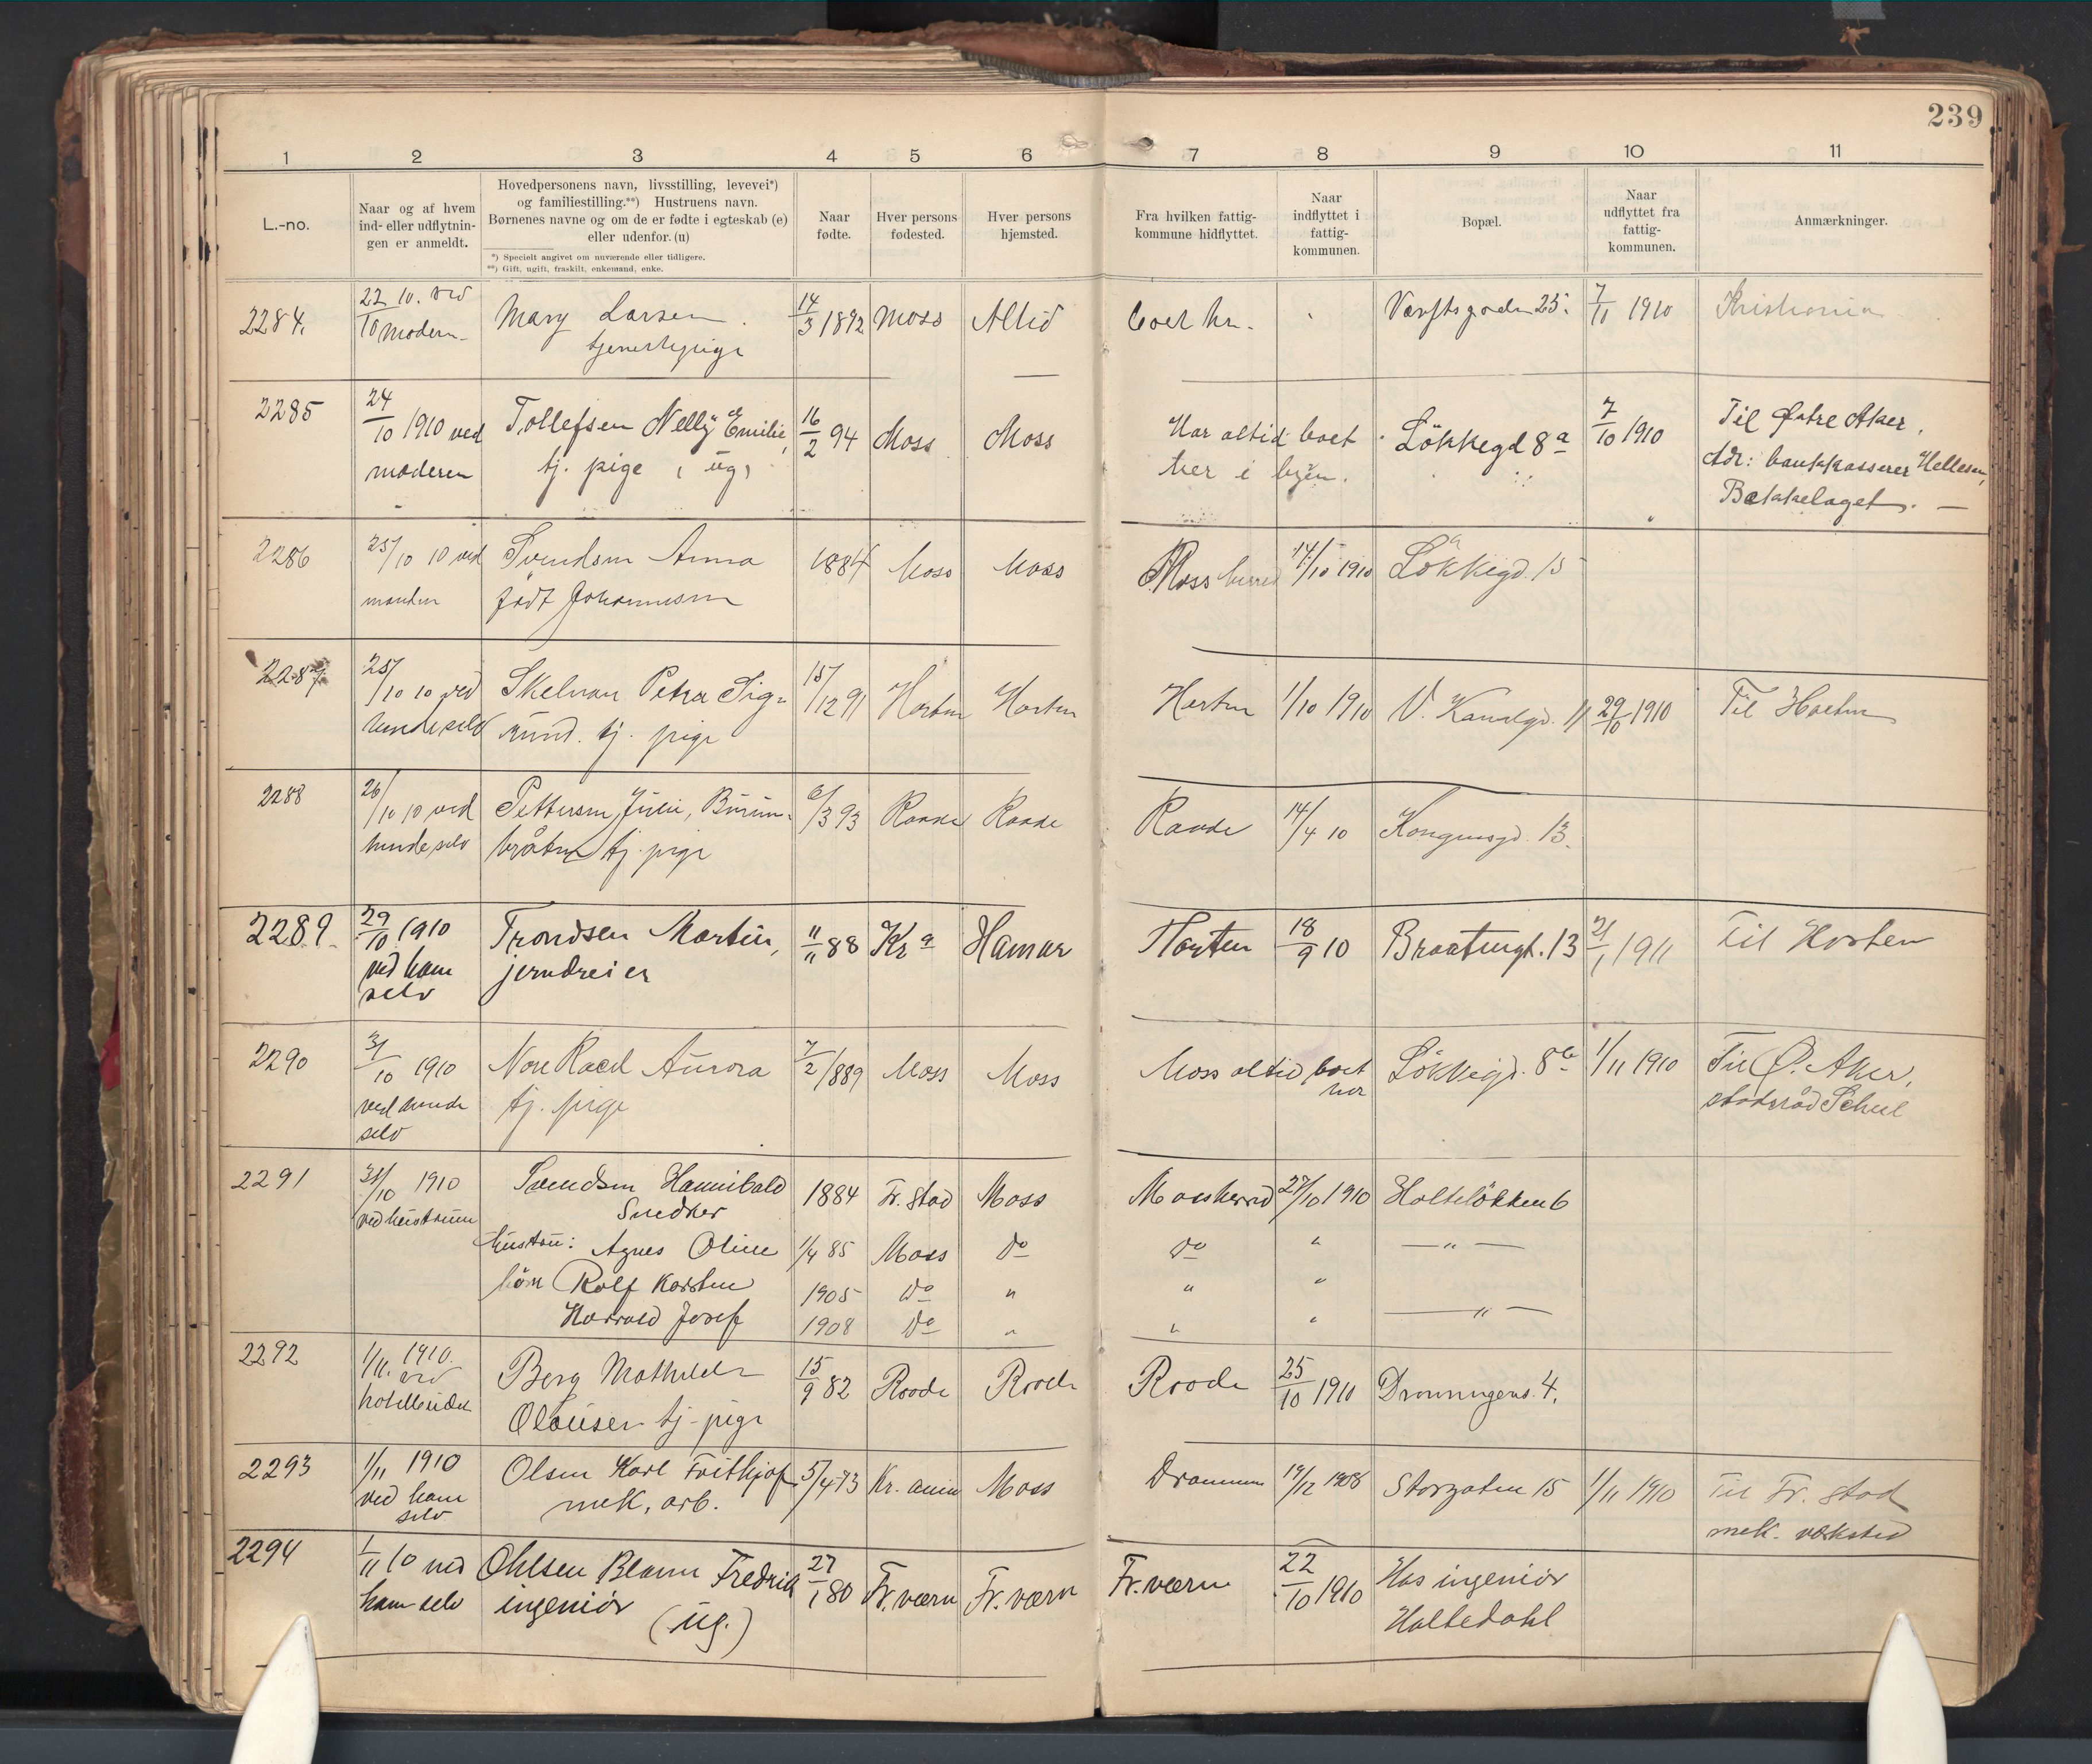 239
1 2 3 4 5 6 7 8 9 10 11
L.-no.
Naar og af hvem
ind- eller udflytnin-
gen er anmeldt.
Hovedpersonens navn, livsstilling, levevei*)
og familiestilling.**) Hustruens navn.
Børnenes navne og om de er fødte i egteskab (e)
eller udenfor. (u)
*) Specielt angivet om nuværende eller tidligere.
**) Gift, ugift, fraskilt, enkemand, enke.
Naar
fødte.
Hver persons
fødested.
Hver persons
hjemsted.
Fra hvilken fattig-
kommune hidflyttet.
Naar
indflyttet i
fattig-
kommunen.
Bopæl.
Naar
udflyttet fra
fattig-
kommunen.
Anmærkninger.
2284. 22/10 10. ved Mary Larsen 14/3 1892 Moss Altid boet her. Værftsgaden 25. 7/11 1910 Kristiania
modern tjenestepige
2285 24/10 1910 ved Tollefsen Nelly Emilie, 16/2 94 Moss Moss Har altid boet Løkkegd 8a 7/10 1910 Til Østre Aker,
moderen tj. pige, ug, her i byen. Adr: bankkasserer Hellesen,
Bækkelaget. —
2286 25/10 10 ved Svendsen Anna 1884 Moss Moss Moss herred 14/10 1910 Løkkegd. 15
manden født Johannesen
2287 25/10 10 ved Petra Sig- 15/12 91 Horten Horten Horten 1/10 1910 V. Kanalgd. 11 29/10 1910 Til Horten
hende selv mund. tj. pige
2288 26/10 10 ved Pettersen, Julie, 6/3 93 Raade Raade Raade 14/4 10 Kongensgd. 13.
hende selv bråten tj. pige
2289 29/10 1910 Trondsen Martin, 11/11 88 Kr a Hamar Horten 18/9 10 Braatengt. 13 21/1 1911 Til Horten
ved ham jerndreier
selv
2290 31/10 1910 Aurora 7/2 1889 Moss Moss Moss altid boet Løkkegd. 8b 1/11 1910 Til Ø. Aker,
ved hende tj. pige her
selv
2291 31/10 1910 Svendsen Hannibald 1884 Fr. stad Moss Moss herred 27/10 1910 Holteløkken 6
ved hustruen Snedker
hustru: Agnes Oline 1/4 85 Moss Do Do " — " —
børn Rolf Karsten 1905 Do " " "
Harald Josef 1908 Do " " " — " —
2292 1/11. 1910. Berg Mathilde 15/9 82 Raade Raade Raade 25/10 1910 Dronningens. 4.
ved
Olausen tj. pige
2293 1/11 1910 Olsen Karl Frithjof 5/4 73 Kr. ania Moss Drammen 19/12 1908 Storgaten 15 1/11 1910 Til Fr. stad
ved ham mek. arb. mek. værksted
selv
2294 1/11 10 ved Ohlsen Fredrik 27/1 80 Fr. værn Fr. værn Fr. værn 22/10 1910 Hos ingeniør
ham selv ingeniør (ug.) Holtedahl